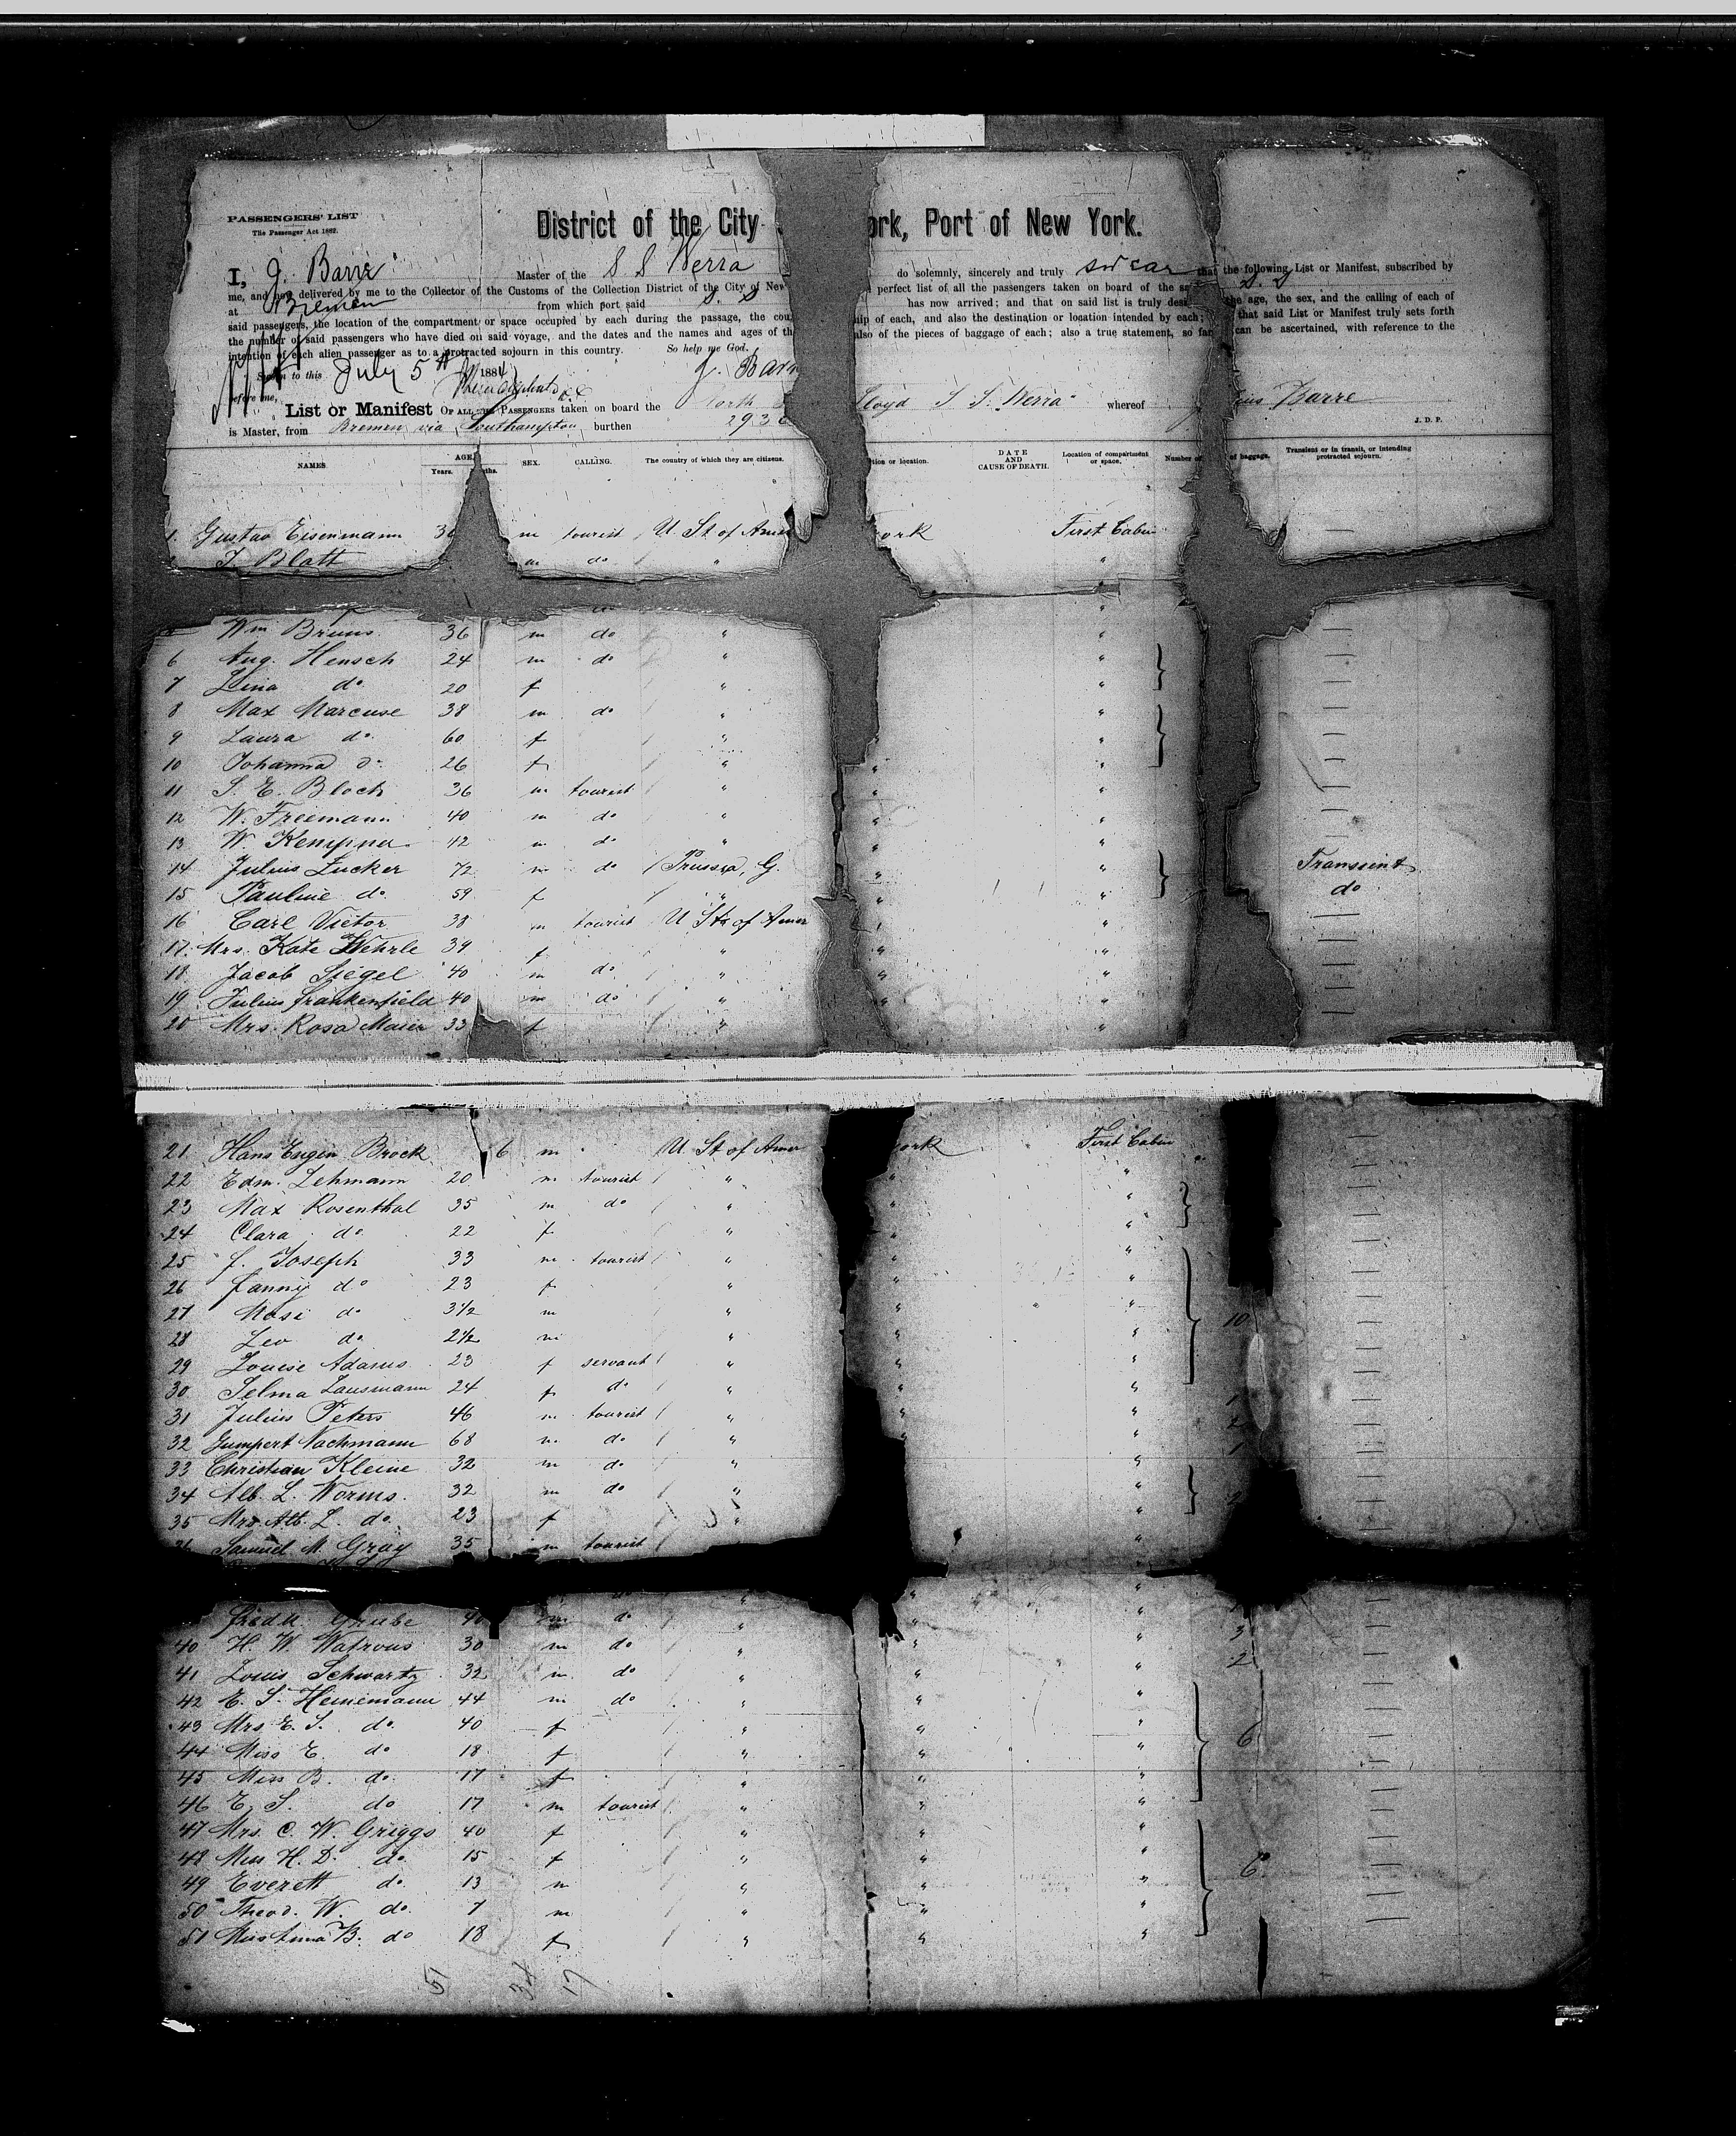 PASSENGERS' LIST
The Passenger Act 1882.
District of the City ork, Port of New York.
I, J. Barre Master of the S S Werra do solemnly, sincerely and truly swear that the following List or Manifest, subscribed by
me, and now delivered by me to the Collector of the Customs of the Collection District of the City of New perfect list of all the passengers taken on board of the S. S
at Bremen from which port said S. S has now arrived; and that on said list is truly desi the age, the sex, and the calling of each of
said passengers, the location of the compartment or space occupied by each during the passage, the cou ip of each, and also the destination or location intended by each; that said List or Manifest truly sets forth
the number of said passengers who have died on said voyage, and the dates and the names and ages of th also of the pieces of baggage of each; also a true statement, so far can be ascertained, with reference to the
intention of each alien passenger as to a protracted sojourn in this country. So help me God.
Sworn to this July 5th 1884 J. Barr
before me,
List or Manifest OF ALL THE PASSENGERS taken on board the North Lloyd S S. Werra whereof ius Barre
is Master, from Bremen via Southampton burthen 2936 J. D. P.
NAMES. AGE. Years. ths. SEX. CALLING. The country of which they are citizens. tion or location. DATE AND CAUSE OF DEATH. Location of compartment or space. Number of of baggage. Transient or in transit, or intending protracted sojourn.
1. Gustav Eisenmann 30 m tourist U. St of Amer ork First Cabin
J. Blatt m do "
Wm Bruns 36 m do " "
6 Aug. Hensch 24 m do " "
7 Lina do 20 f " "
8 Max Marcuse 38 m do " "
9 Laura do 60 f " "
10 Johanna do 26 f " " "
11 S. E. Bloch 36 m tourist " " "
12 W. Freemann 40 m do " " "
13 W. Kempner 42 m do " " "
14 Julius Zucker 72 m do Prussia, G. " " Transient
15 Pauline do 59 f " " " do
16 Carl Victor 38 m tourist U Sts of Amer " "
17. Mrs. Kate Wehrle 39 f " " "
18 Jacob Siegel 40 m do " " "
19 Julius Frankenfield 40 m do " " "
20 Mrs. Rosa Maier 33 f " "
21 Hans Eugen Brock 6 m U. St of Amer ork First Cabin
22 Edm. Lehmann 20 m tourist " " "
23 Max Rosenthal 35 m do " " "
24 Clara do 22 f " " "
25 J. Joseph 33 m tourist " " "
26 Fanny do 23 f " " "
27 Mosi do 3 1/2 m " " " 10
28 Leo do 2 1/2 m " " "
29 Louise Adams 23 f servant " " "
30 Selma Lausmann 24 f do " " " 1
31 Julius Peters 46 m tourist " " " 2
32 Gumpert Nachmann 68 m do " " " 1
33 Christian Kleine 32 m do " "
34 Alb. L. Worms. 32 m do " " 2
35 Mrs Alb. L. do 23 f " "
36 Samuel M. Gray 35 m tourist "
Fredk Grube 40 m do " " "
40 H. W. Watrous 30 m do " " " 3
41 Louis Schwartz 32 m do " " " 2
42 E. S. Heinemann 44 m do " " "
43 Mrs E. S. do 40 f " " "
44 Miss E. do 18 f " " " 6
45 Miss B. do 17 f " " "
46 E. S. do 17 m tourist " " "
47 Mrs. C. W. Griggs 40 f " " "
48 Miss H. D. do 15 f " " " 6
49 Everett do 13 m " " "
50 Theod. W. do 7 m " " "
51 Miss Anna B. do 18 f " " "
51 34 17